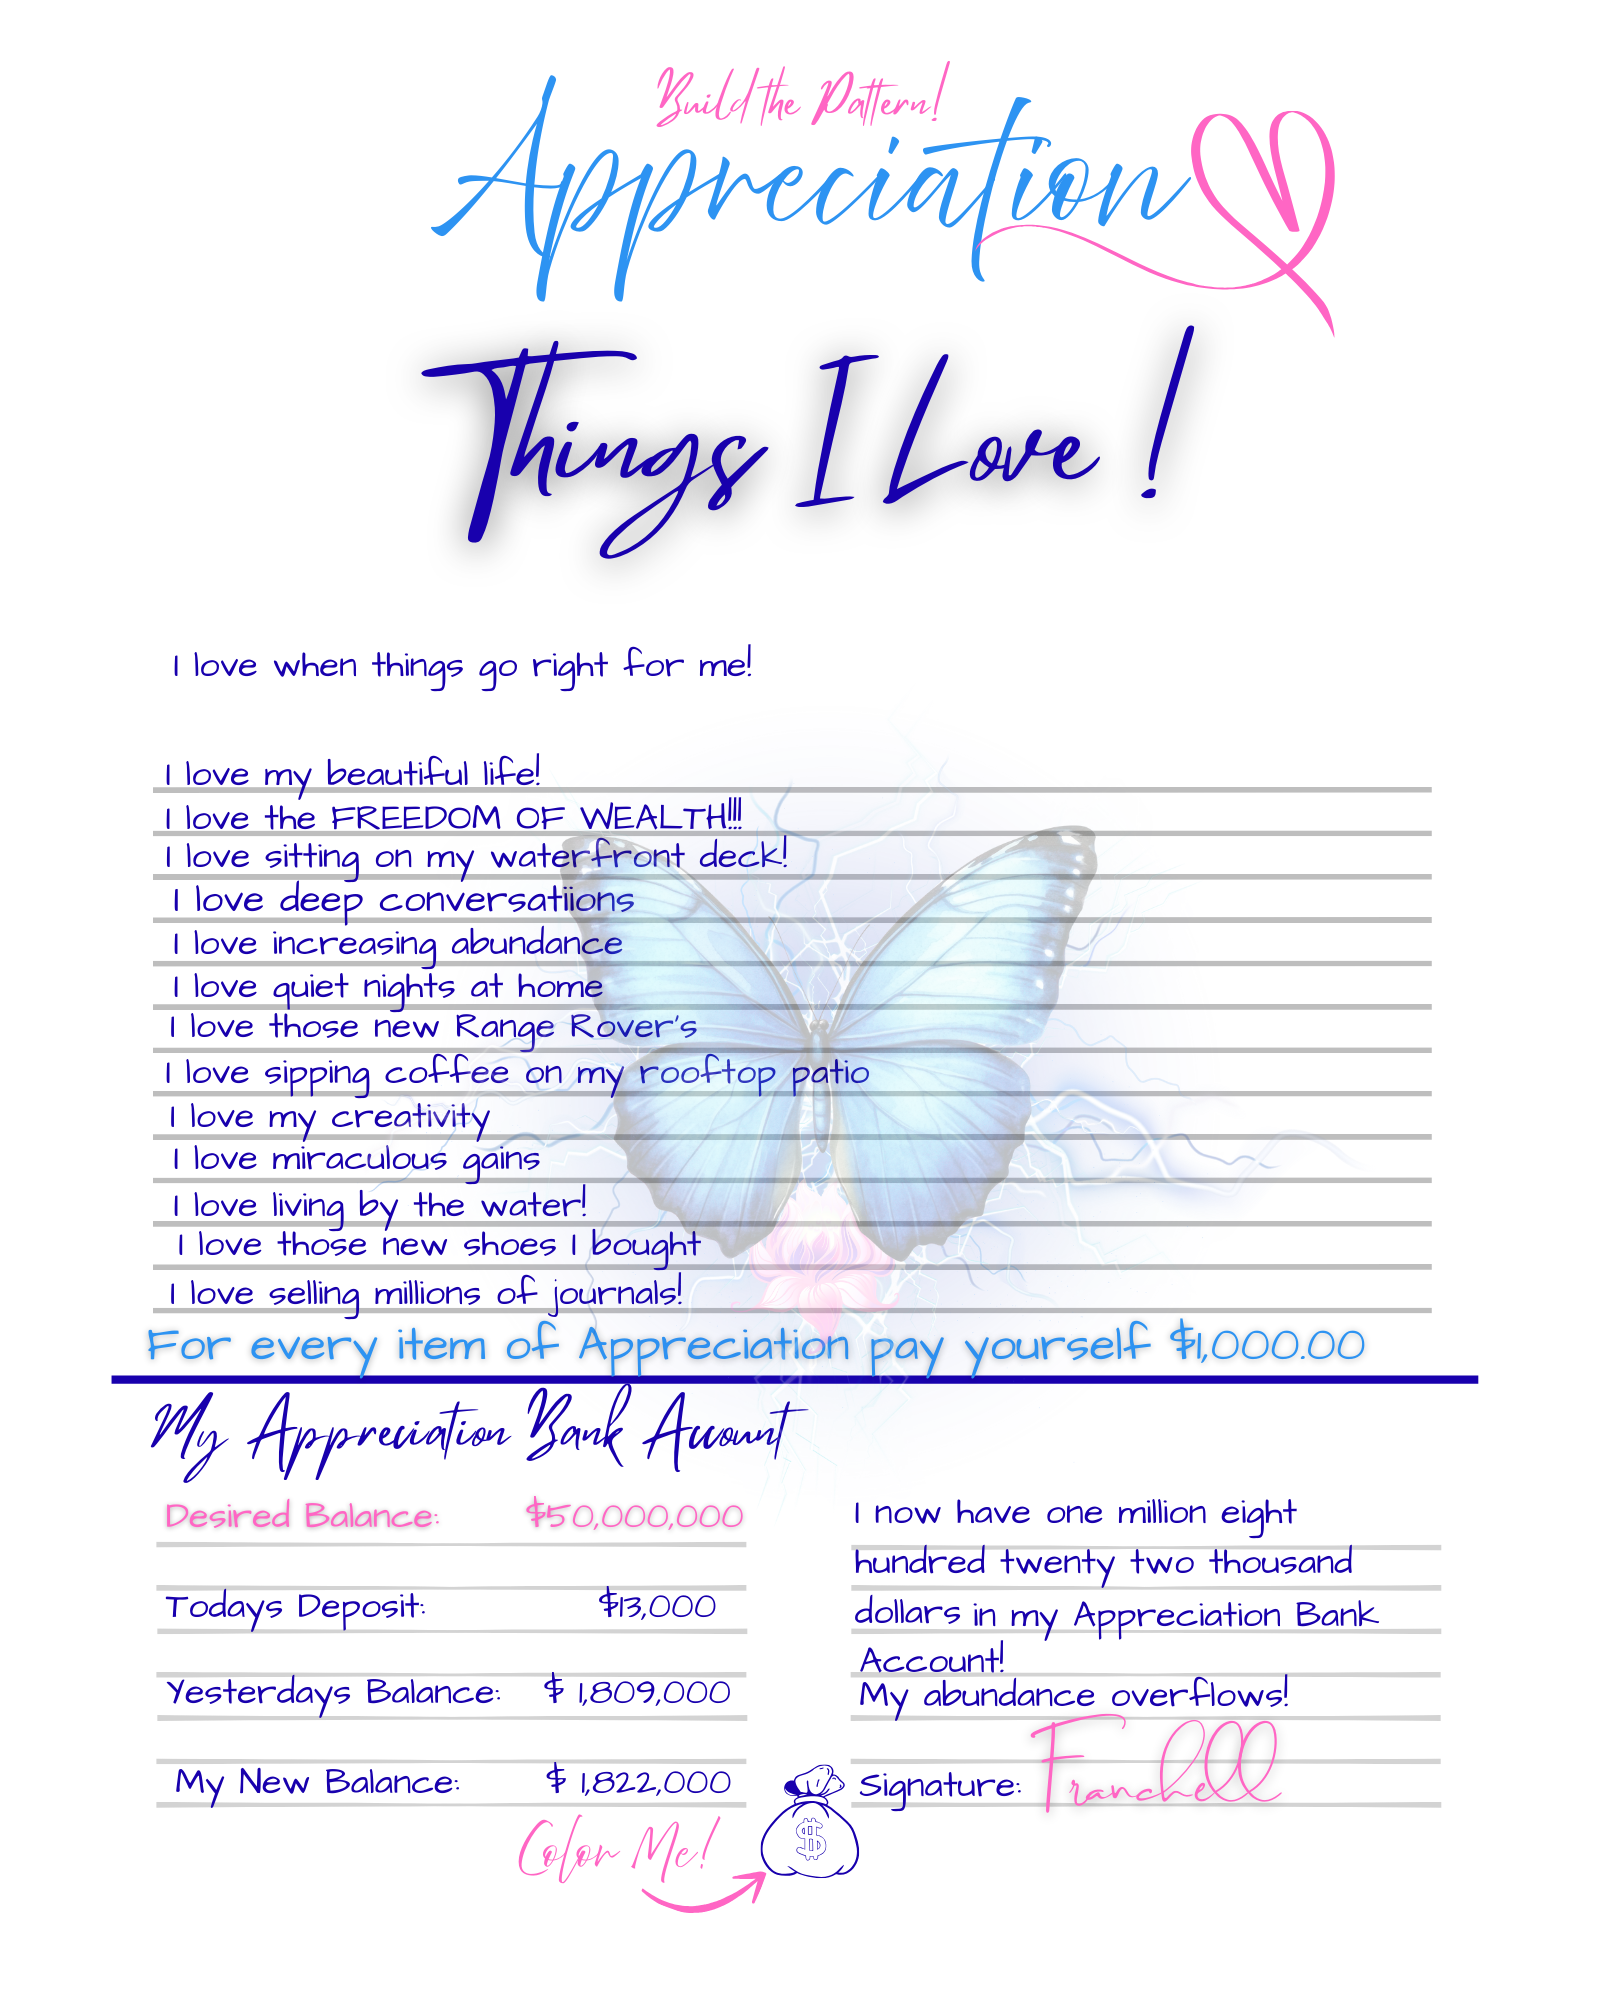 Build the Pattern!
Appreciation
Things I Love !
I love when things go right for me!
I love my beautiful life!
I love the FREEDOM OF WEALTH!!!
I love sitting on my waterfront deck!
I love deep conversatiions
I love increasing abundance
I love quiet nights at home
I love those new Range Rover's
I love sipping coffee on my rooftop patio
I love my creativity
I love miraculous gains
I love living by the water!
I love those new shoes I bought
I love selling millions of journals!
For every item of Appreciation pay yourself $1,000.00
My Appreciation Bank Account
Desired Balance: $50,000,000
Todays Deposit: $13,000
Yesterdays Balance: $ 1,809,000
My New Balance: $ 1,822,000
I now have one million eight
hundred twenty two thousand
dollars in my Appreciation Bank
Account!
My abundance overflows!
Signature: Franchell
Color Me!
$